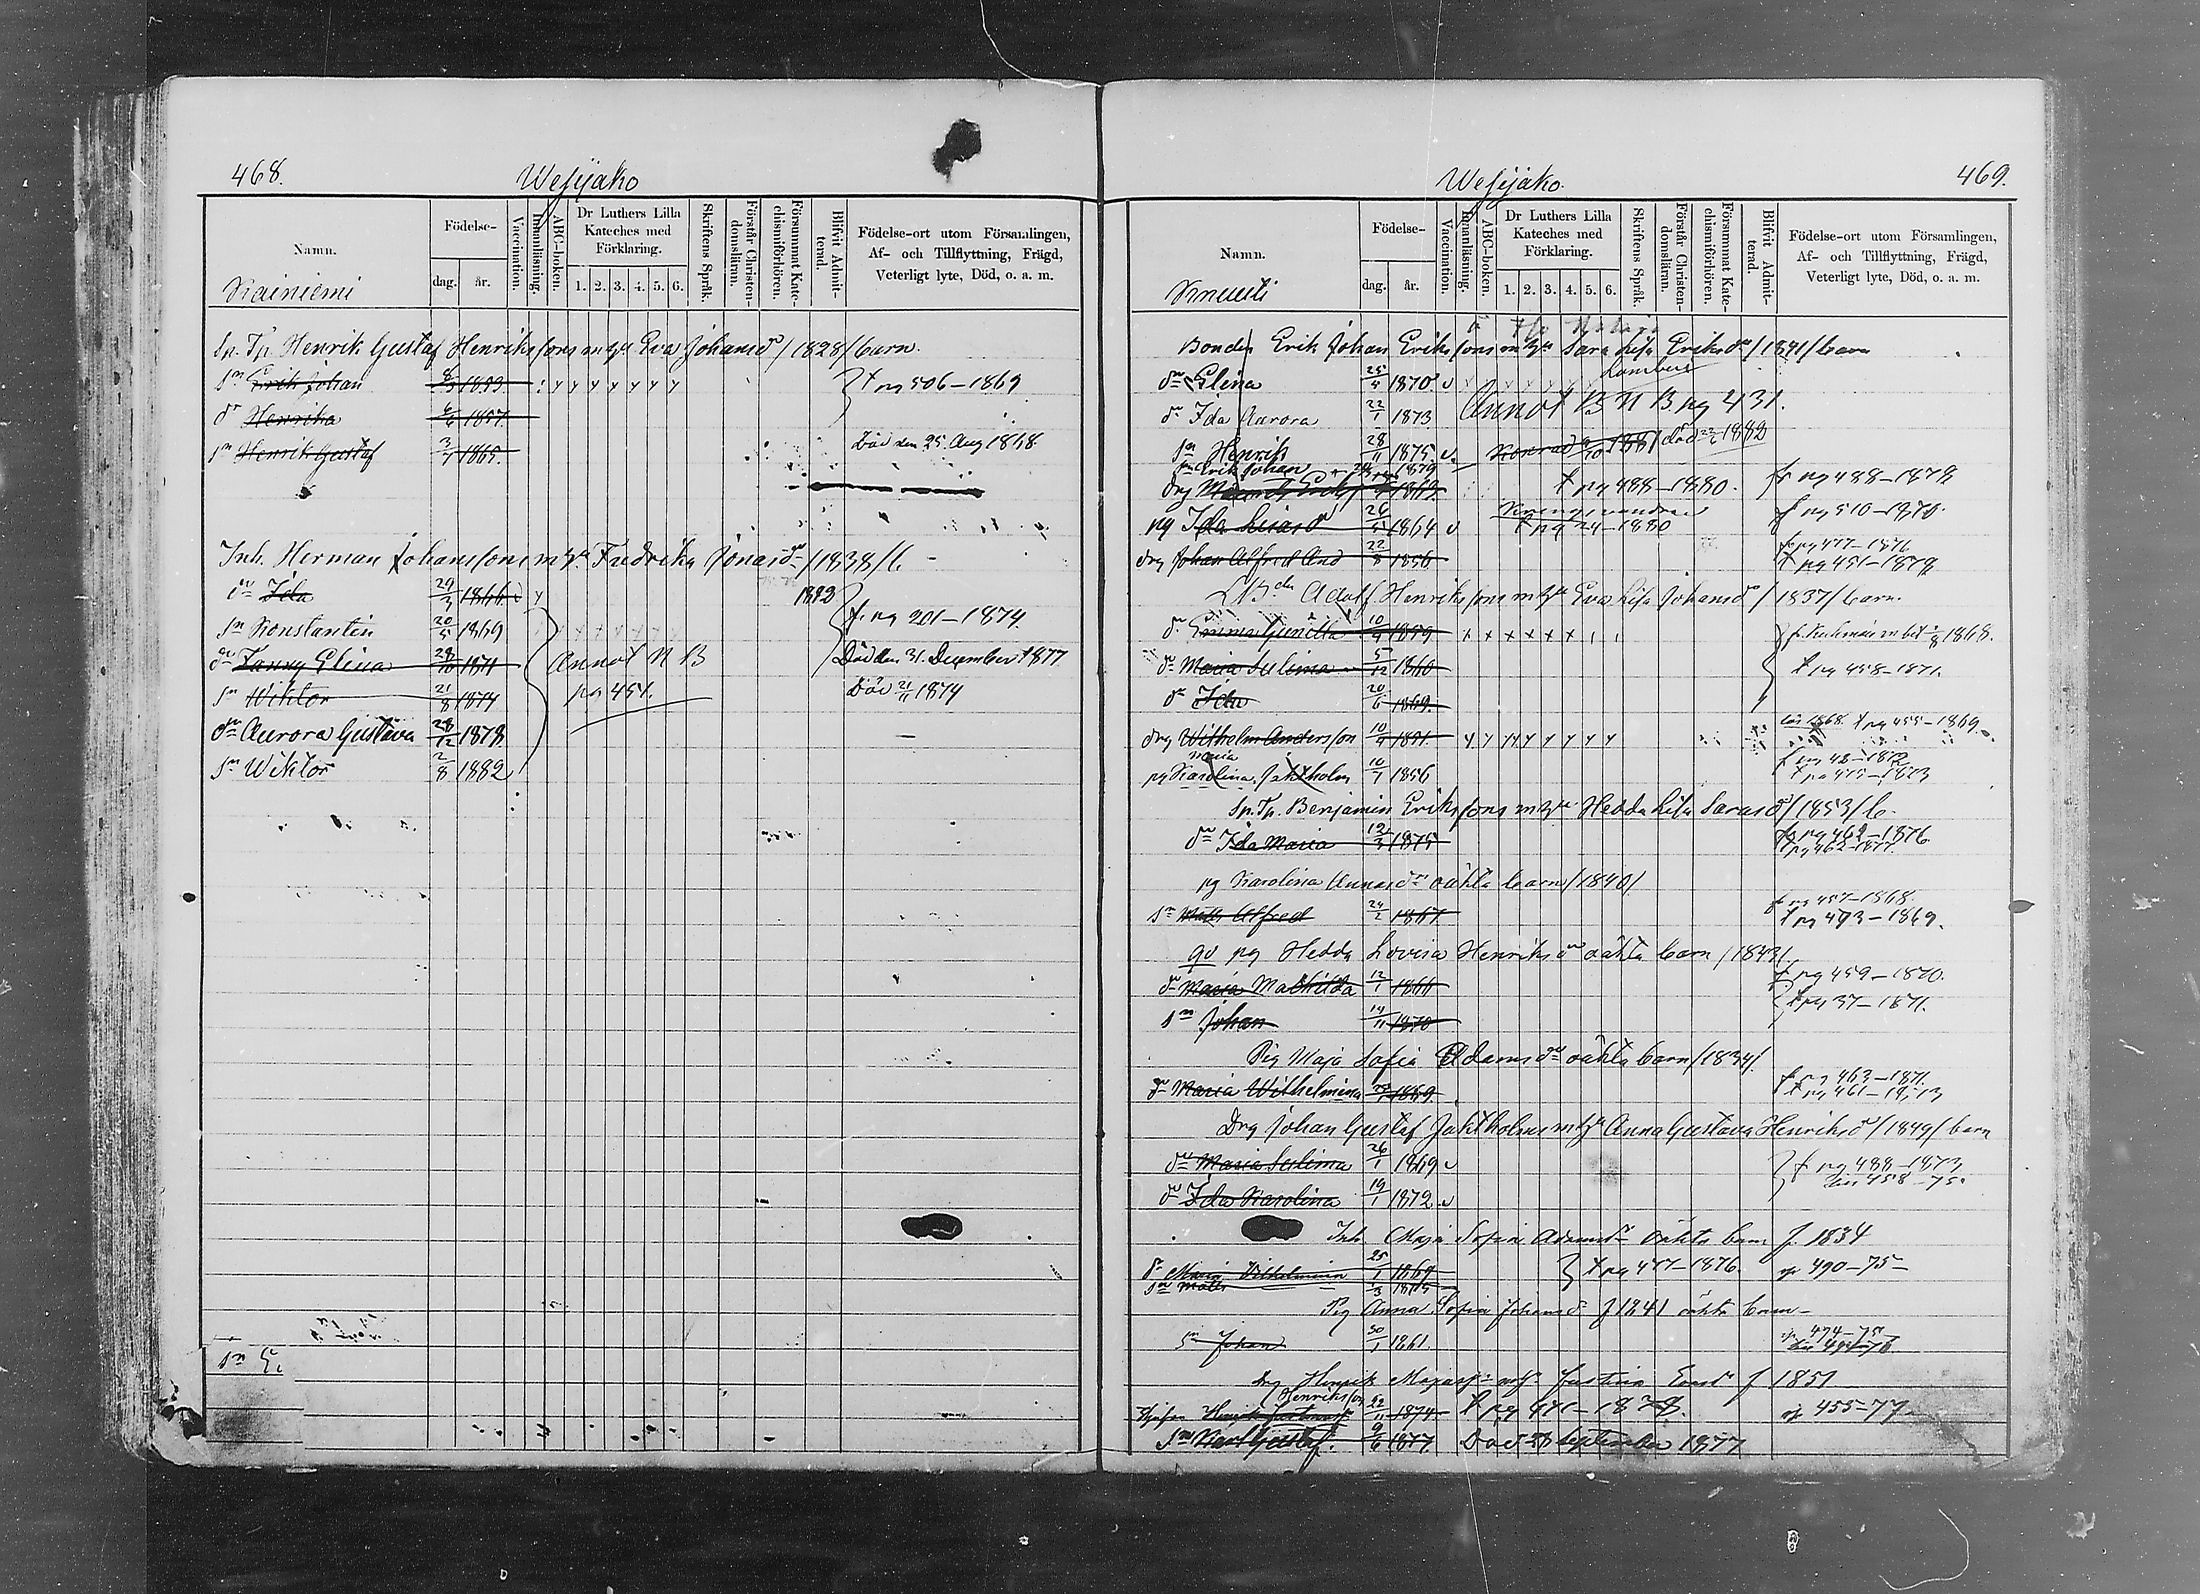 468.
Wesijako
Namn.
Födelse-
dag.
år.
Vaccination.
Innanläsning.
ABC-boken.
Dr Luthers Lilla
Kateches med
Förklaring.
1. 2. 3. 4. 5. 6.
Skriftens Språk.
Förstår Christendomsläran.
Försummat Katechismiförhören.
Blifvit Admitterad.
Födelse-ort utom Församlingen,
Af- och Tillflyttning, Frägd,
Veterligt lyte, Död, o. a. m.
Kainiemi
Sp. Tp. Henrik Gustaf Henrikssons m hu Eva Johansdr /1828/ barn.
sn Erik Johan 1853 † pg 506–1869
dr Henrika 1857.
sn Henrik Gustaf 3/1 1865. Död den 25 Aug 1868
Inh. Herman Johanssons m hu Fredrika Jonasdr /1838/ b
dr Ida 29/3 1866 1882
sn Konstantin 20/5 1869 fr pg 201–1874.
dr Fanny Elina 28/10 1871 Annot N B Död den 31 December 1877
sn Wiktor 21/8 1874 pg 451. Död 21/11 1874
dr Aurora Gustava 28/12 1878
sn Wiktor 2/8 1882
sn
469.
Wesijako.
Namn.
Födelse-
dag.
år.
Vaccination.
Innanläsning.
ABC-boken.
Dr Luthers Lilla
Kateches med
Förklaring.
1. 2. 3. 4. 5. 6.
Skriftens Språk.
Förstår Christendomsläran.
Försummat Katechismiförhören.
Blifvit Admitterad.
Födelse-ort utom Församlingen,
Af- och Tillflyttning, Frägd,
Veterligt lyte, Död, o. a. m.
Knuuti
Bonden Erik Johan Erikssons m hu Sara Lisa Eriksdr /1841/ barn
dr Elina 25/4 1870
dr Ida Aurora 22/1 1873 Annot B N B pg 431.
sn Henrik 28/11 1875 Konrad 1881 död 1882
sn Erik Johan 1879
drg 1863. † pg 488–1880. fr pg 488–1878
pg Ida Lisasdr 26/5 1864 † pg 24–1880 fr pg 510–1870.
drg Johan Alfred And 22/8 1856 fr pg 477–1876
† pg 451–1878
Bden Adolf Henrikssons m hu Eva Lisa Johansdr / 1837/ barn.
dr Emma Gunilla 10/4 1859 1868.
dr Maria Selima 5/12 1860 † pg 458–1871.
dr Ida 20/6 1869.
drg Wilhelm Andersson 10/4 1851. 1868. † pg 455–1869.
Maria
pg Karolina Jaktholm 16/7 1856 fr pg 42–1872
† pg 475–1873
Sp. Tp. Benjamin Erikssons m hu Hedda Lisa Sarasdr /1853/ b.
dr Ida Maria 12/3 1875 fr pg 462–1876
† pg 462–1877.
pg Karolina Annasdr oäkta barn /1840/
sn Matts Alfred 24/2 1867 fr pg 457–1868.
† pg 493–1869.
pg Hedda Lovisa Henriksdr oäkta barn /1843/
dr Maria Mathilda 12/1 1866 fr pg 459–1870.
sn Johan 14/11 1870 † pg 37–1871.
Pig Maja Sofia Adamsdr oäkta barn /1834/.
dr Maria Wilhelmina 1869. fr pg 463–1871.
† pg 461–1873
Drg Johan Gustaf Jaktholms m hu Anna Gustava Henriksdr /1849/ barn
dr Maria Selima 26/1 1869 fr pg 488–1873
dr Ida Karolina 19/1 1872 458–75.
Inh. Maja Sofia Adamsdr oäkta barn f. 1834
dr Maria Wilhelmina 25/1 1869 † pg 477–1876. 490–75
sn Matts 1875
Pig Anna Sofia Johansdr f 1841 oäkta barn
sn Johan 30/1 1861. 474–75
494–76
drg Henrik Majass m hu Justina Evasdr f 1851
Henriksson
22/11 1874 † pg 471–1878. 455–77.
sn Karl Gustaf. 9/6 1877 Död 28 September 1877